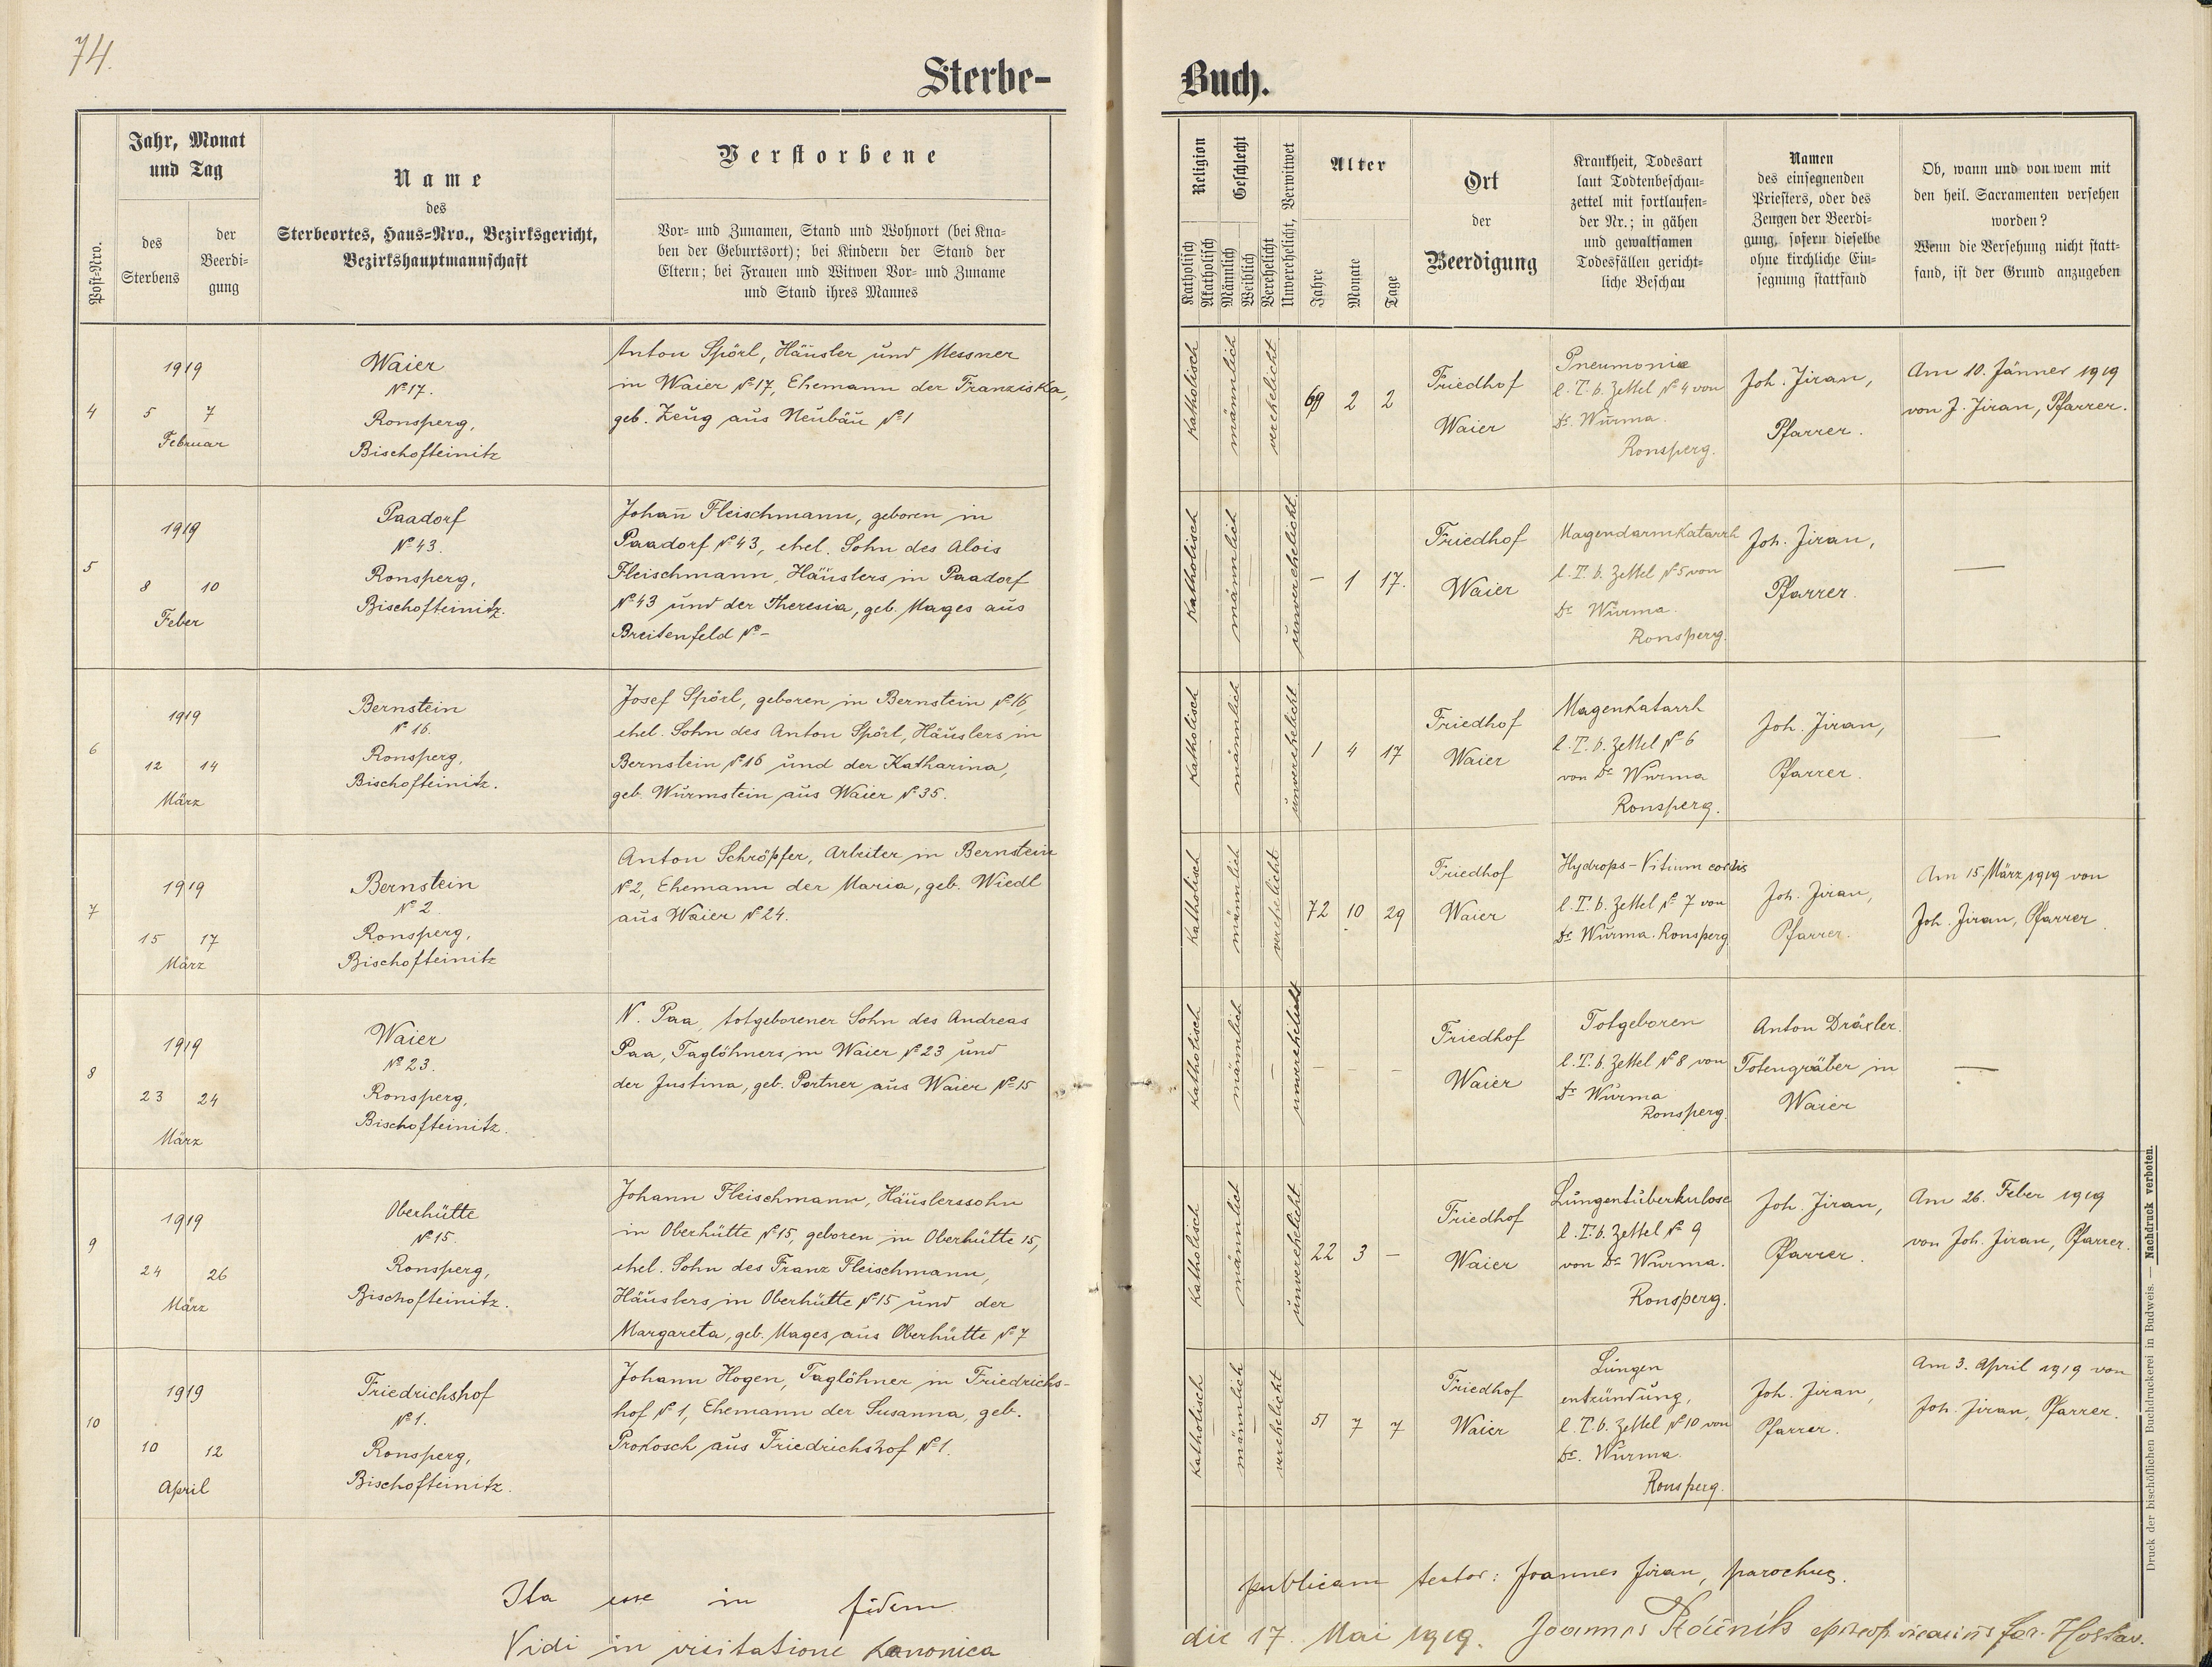 74.
Sterbe-
Buch.
Post-Nro.
Jahr, Monat
und Tag
des
Sterbens
der
Beerdi-
gung
Name
des
Sterbeortes, Haus-Nro., Bezirksgericht,
Bezirkshauptmannschaft
Verstorbene
Vor- und Zunamen, Stand und Wohnort (bei Kna-
ben der Geburtsort); bei Kindern der Stand der
Eltern; bei Frauen und Witwen Vor- und Zuname
und Stand ihres Mannes
Religion
Katholisch
Akatholisch
Geschlecht
Männlich
Weiblich
Verehelicht
Unverehelicht, Verwitwet
Alter
Jahre
Monate
Tage
Ort
der
Beerdigung
Krankheit, Todesart
laut Todtenbeschau-
zettel mit fortlaufen-
der Nr.; in gähen
und gewaltsamen
Todesfällen gericht-
liche Beschau
Namen
des einsegnenden
Priesters, oder des
Zeugen der Beerdi-
gung, sofern dieselbe
ohne kirchliche Ein-
segnung stattfand
Ob, wann und von wem mit
den heil. Sacramenten versehen
worden?
Wenn die Versehung nicht statt-
fand, ist der Grund anzugeben
4
1919
5 7
Februar
Waier
No 17.
Ronsperg,
Bischofteinitz
Anton Spörl, Häusler und Messner
in Waier No 17, Ehemann der Franziska,
geb. Zeug aus Neubäu No 1
Katholisch
männlich
verehelicht
69 2 2
Friedhof
Waier
Pneumonie
l. T. b. Zettel No 4 von
Dr. Wurma.
Ronsperg.
Joh. Jiran,
Pfarrer.
Am 10. Jänner 1919
von J. Jiran, Pfarrer.
5
1919
8 10
Feber
Paadorf
No 43.
Ronsperg,
Bischofteinitz.
Johan̄ Fleischmann, geboren in
Paadorf No 43, ehel. Sohn des Alois
Fleischmann, Häuslers in Paadorf
No 43 und der Theresia, geb. Mages aus
Breitenfeld No -
Katholisch
männlich
unverehelicht
- 1 17.
Friedhof
Waier
Magendarmkatarrh
l. T. b. Zettel No 5 von
Dr. Wurma.
Ronsperg.
Joh. Jiran,
Pfarrer.
—
6
1919
12 14
März
Bernstein
No 16.
Ronsperg,
Bischofteinitz.
Josef Spörl, geboren in Bernstein No 16,
ehel. Sohn des Anton Spörl, Häuslers in
Bernstein No 16 und der Katharina,
geb. Wurmstein aus Waier No 35.
Katholisch
männlich
unverehelicht
1 4 17
Friedhof
Waier
Magenkatarrh
l. T. b. Zettel No 6
von Dr Wurma
Ronsperg.
Joh. Jiran,
Pfarrer.
—
7
1919
15 17
März
Bernstein
No 2.
Ronsperg,
Bischofteinitz
Anton Schröpfer, Arbeiter in Bernstein
No 2, Ehemann der Maria, geb. Wiedl
aus Waier No 24.
Katholisch
männlich
verehelicht
72 10 29
Friedhof
Waier
Hydrops - Vitium cordis
l. T. b. Zettel No 7 von
Dr. Wurma. Ronsperg
Joh. Jiran,
Pfarrer.
Am 15. März 1919 von
Joh. Jiran, Pfarrer
8
1919
23 24
März
Waier
No 23.
Ronsperg,
Bischofteinitz.
N. Paa, totgeborener Sohn des Andreas
Paa, Taglöhners in Waier No 23 und
der Justina, geb. Portner aus Waier No 15
Katholisch
männlich
unverehelicht
- - -
Friedhof
Waier
Totgeboren
l. T. b. Zettel No 8 von
Dr. Wurma
Ronsperg.
Anton Dräxler.
Totengräber in
Waier
—
9
1919
24 26
März
Oberhütte
No 15.
Ronsperg,
Bischofteinitz.
Johann Fleischmann, Häuslerssohn
in Oberhütte No 15, geboren in Oberhütte 15,
ehel. Sohn des Franz Fleischmann,
Häuslers in Oberhütte No 15 und der
Margareta, geb. Mages aus Oberhütte No 7
Katholisch
männlich
unverehelicht
22 3 -
Friedhof
Waier
Lungentuberkulose
l. T. b. Zettel No 9
von Dr Wurma.
Ronsperg.
Joh. Jiran,
Pfarrer.
Am 26. Feber 1919
von Joh. Jiran, Pfarrer.
10
1919
10 12
April
Friedrichshof
No 1.
Ronsperg,
Bischofteinitz.
Johann Hogen, Taglöhner in Friedrichs-
hof No 1, Ehemann der Susanna, geb.
Prokosch aus Friedrichshof No 1.
Katholisch
männlich
verehelicht
51 7 7
Friedhof
Waier
Lungen
entzündung,
l. T. b. Zettel No 10 von
Dr. Wurma.
Ronsperg.
Joh. Jiran,
Pfarrer.
Am 3. April 1919 von
Joh. Jiran, Pfarrer.
Ita esse in fidem publicam testor: Joannes Jiran, parochus.
Vidi in visitatione kanonica die 17. Mai 1919. Joannes vicarius for. Hostav.
Druck der bischöflichen Buchdruckerei in Budweis. — Nachdruck verboten.